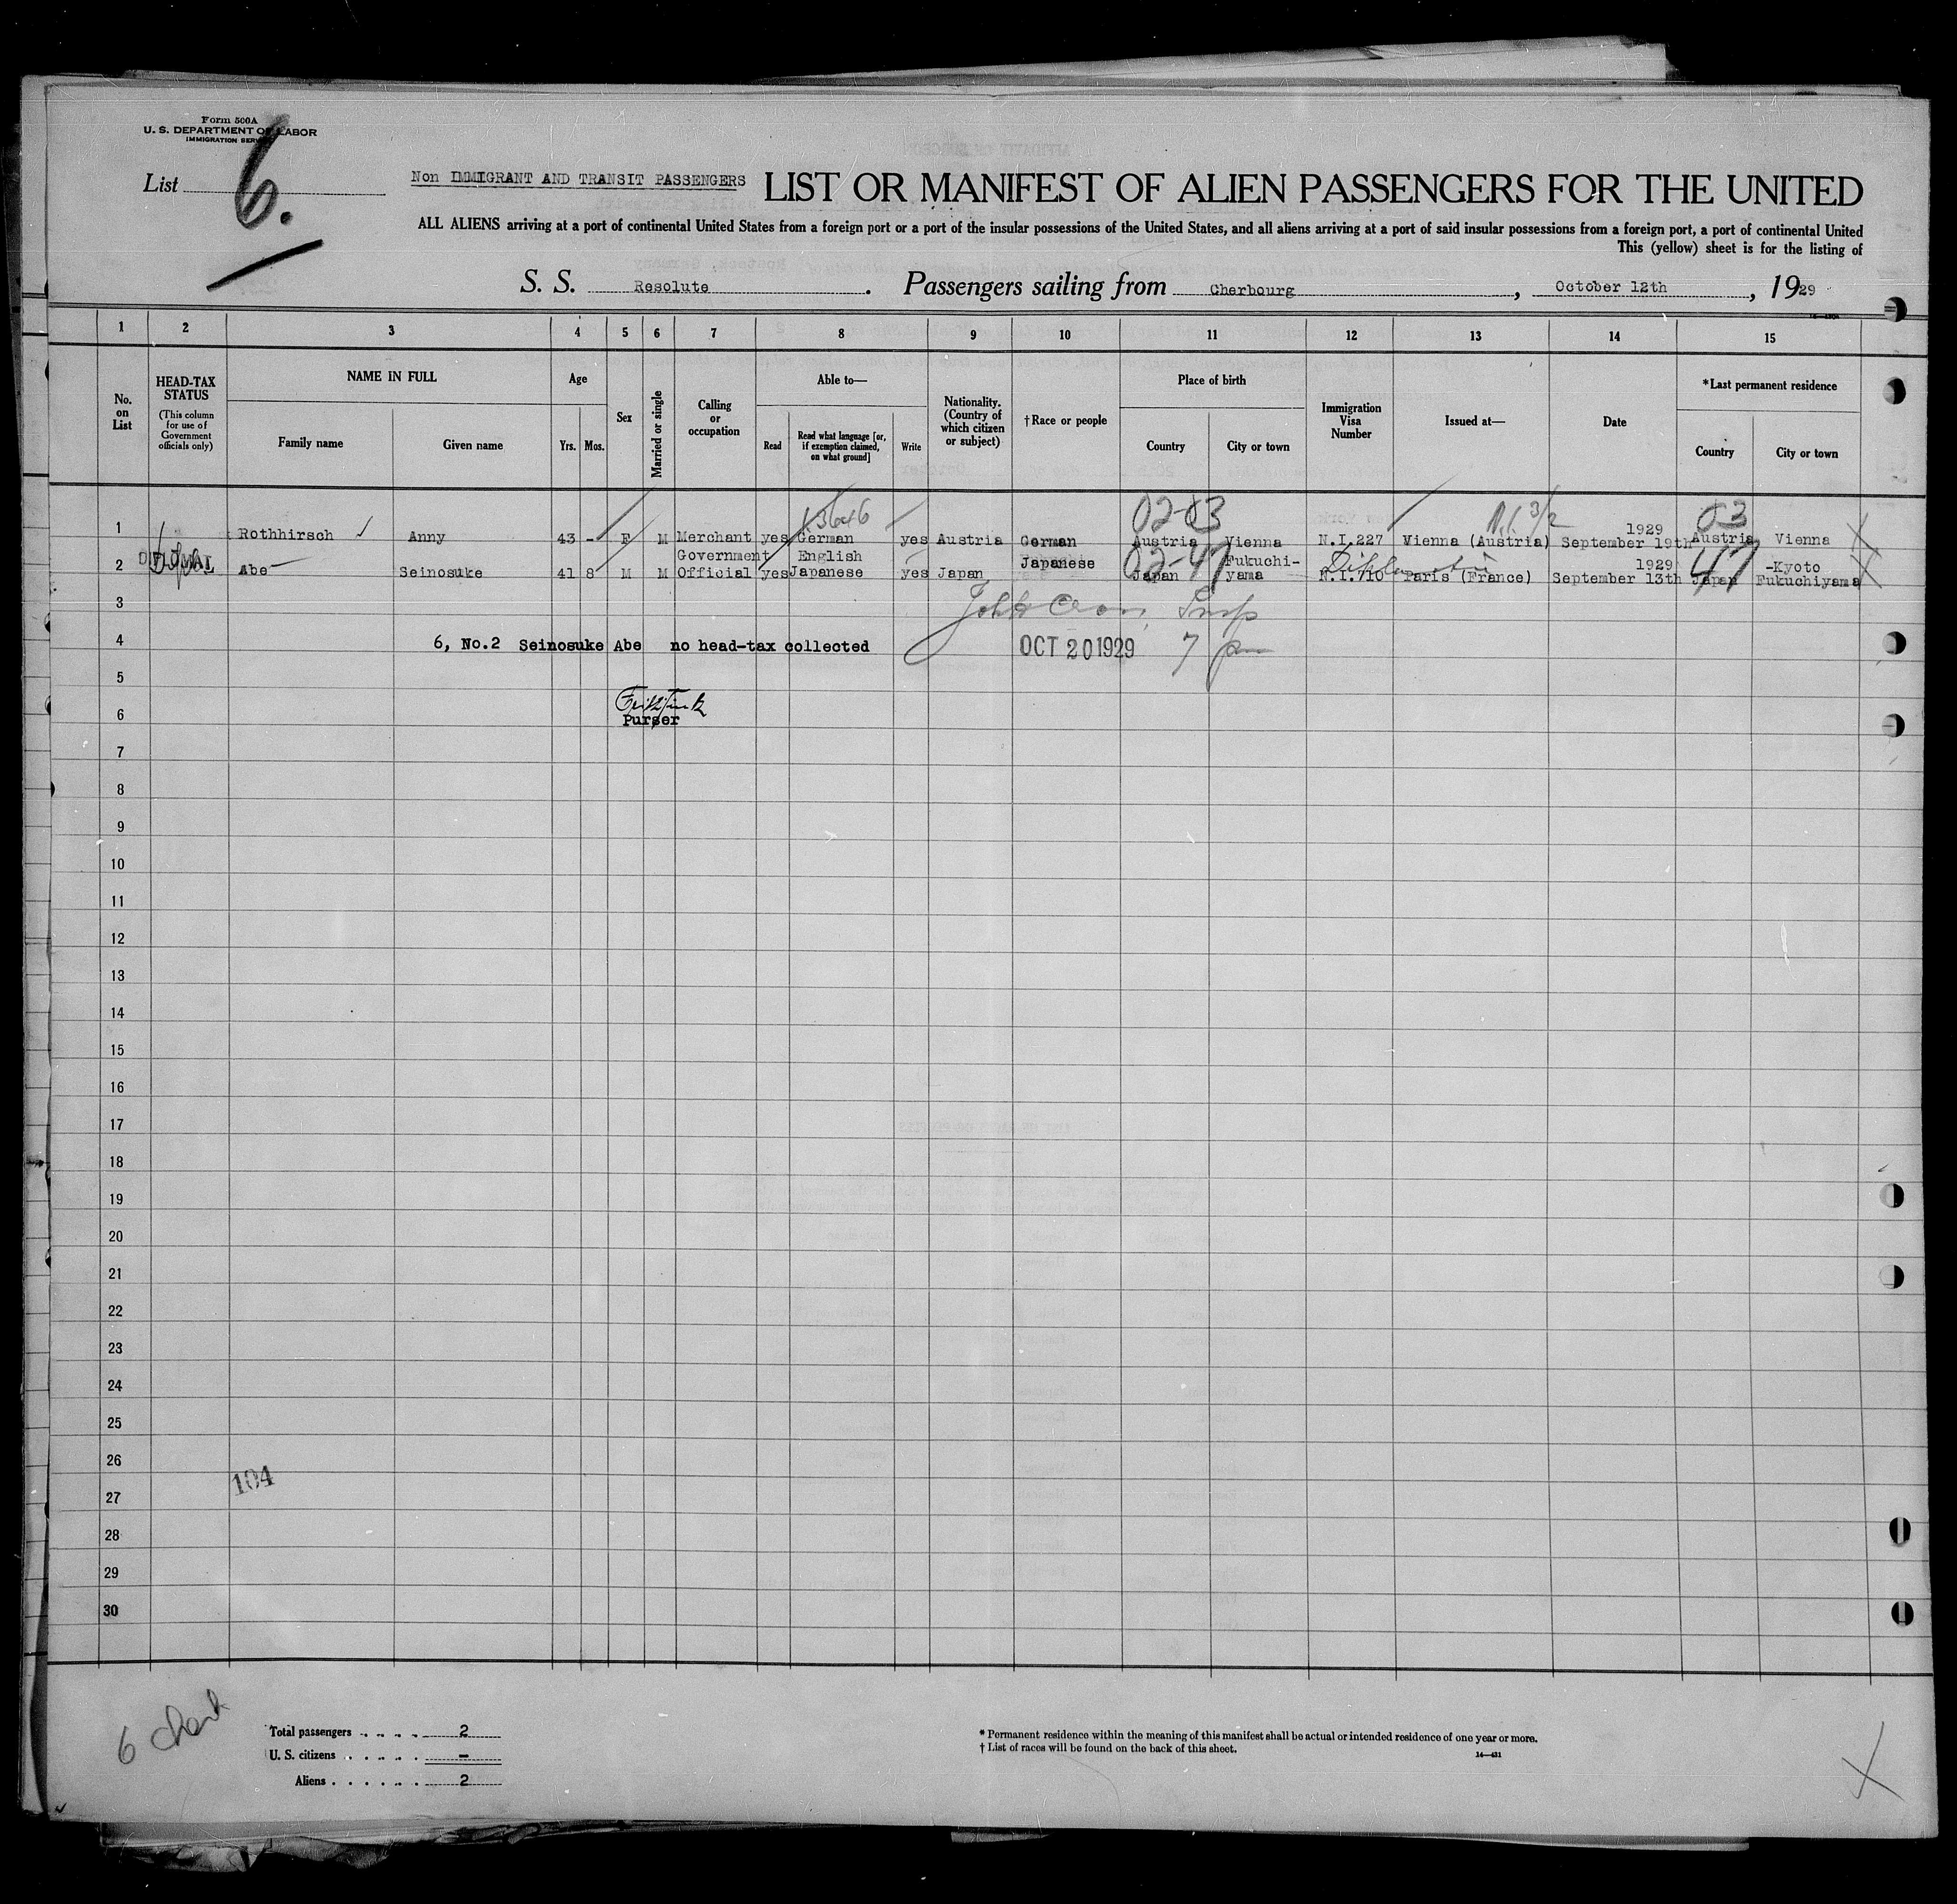 Form 500A
U. S. DEPARTMENT OF LABOR
IMMIGRATION SERVICE
List 6.
Non IMMIGRANT AND TRANSIT PASSENGERS
LIST OR MANIFEST OF ALIEN PASSENGERS FOR THE UNITED
ALL ALIENS arriving at a port of continental United States from a foreign port or a port of the insular possessions of the United States, and all aliens arriving at a port of said insular possessions from a foreign port, a port of continental United
This (yellow) sheet is for the listing of
S. S. Resolute. Passengers sailing from Cherbourg, October 12th, 1929
1 2 3 4 5 6 7 8 9 10 11 12 13 14 15
No. on List
HEAD-TAX STATUS
(This column for use of Government officials only)
NAME IN FULL
Family name
Given name
Age
Yrs. Mos.
Sex
Married or single
Calling or occupation
Able to—
Read
Read what language [or, if exemption claimed, on what ground]
Write
Nationality. (Country of which citizen or subject)
†Race or people
Place of birth
Country
City or town
Immigration Visa Number
Issued at—
Date
*Last permanent residence
Country
City or town
02-03 N.I. 3/2 03
1 Rothhirsch Anny 43 - F M Merchant yes German yes Austria German Austria Vienna N.I.227 Vienna (Austria) September 19th 1929 Austria Vienna
02-47 47
2 Abe Seinosuke 41 8 M M Government Official yes English Japanese yes Japan Japanese Japan Fukuchi-yama N.I.710 Paris (France) September 13th 1929 Japan -Kyoto Fukuchiyama
3
4 6, No.2 Seinosuke Abe no head-tax collected OCT 20 1929 7 pm
5
6 Purser
7
8
9
10
11
12
13
14
15
16
17
18
19
20
21
22
23
24
25
26
104
27
28
29
30
Total passengers 2
U. S. citizens –
Aliens 2
* Permanent residence within the meaning of this manifest shall be actual or intended residence of one year or more.
† List of races will be found on the back of this sheet.
14—431